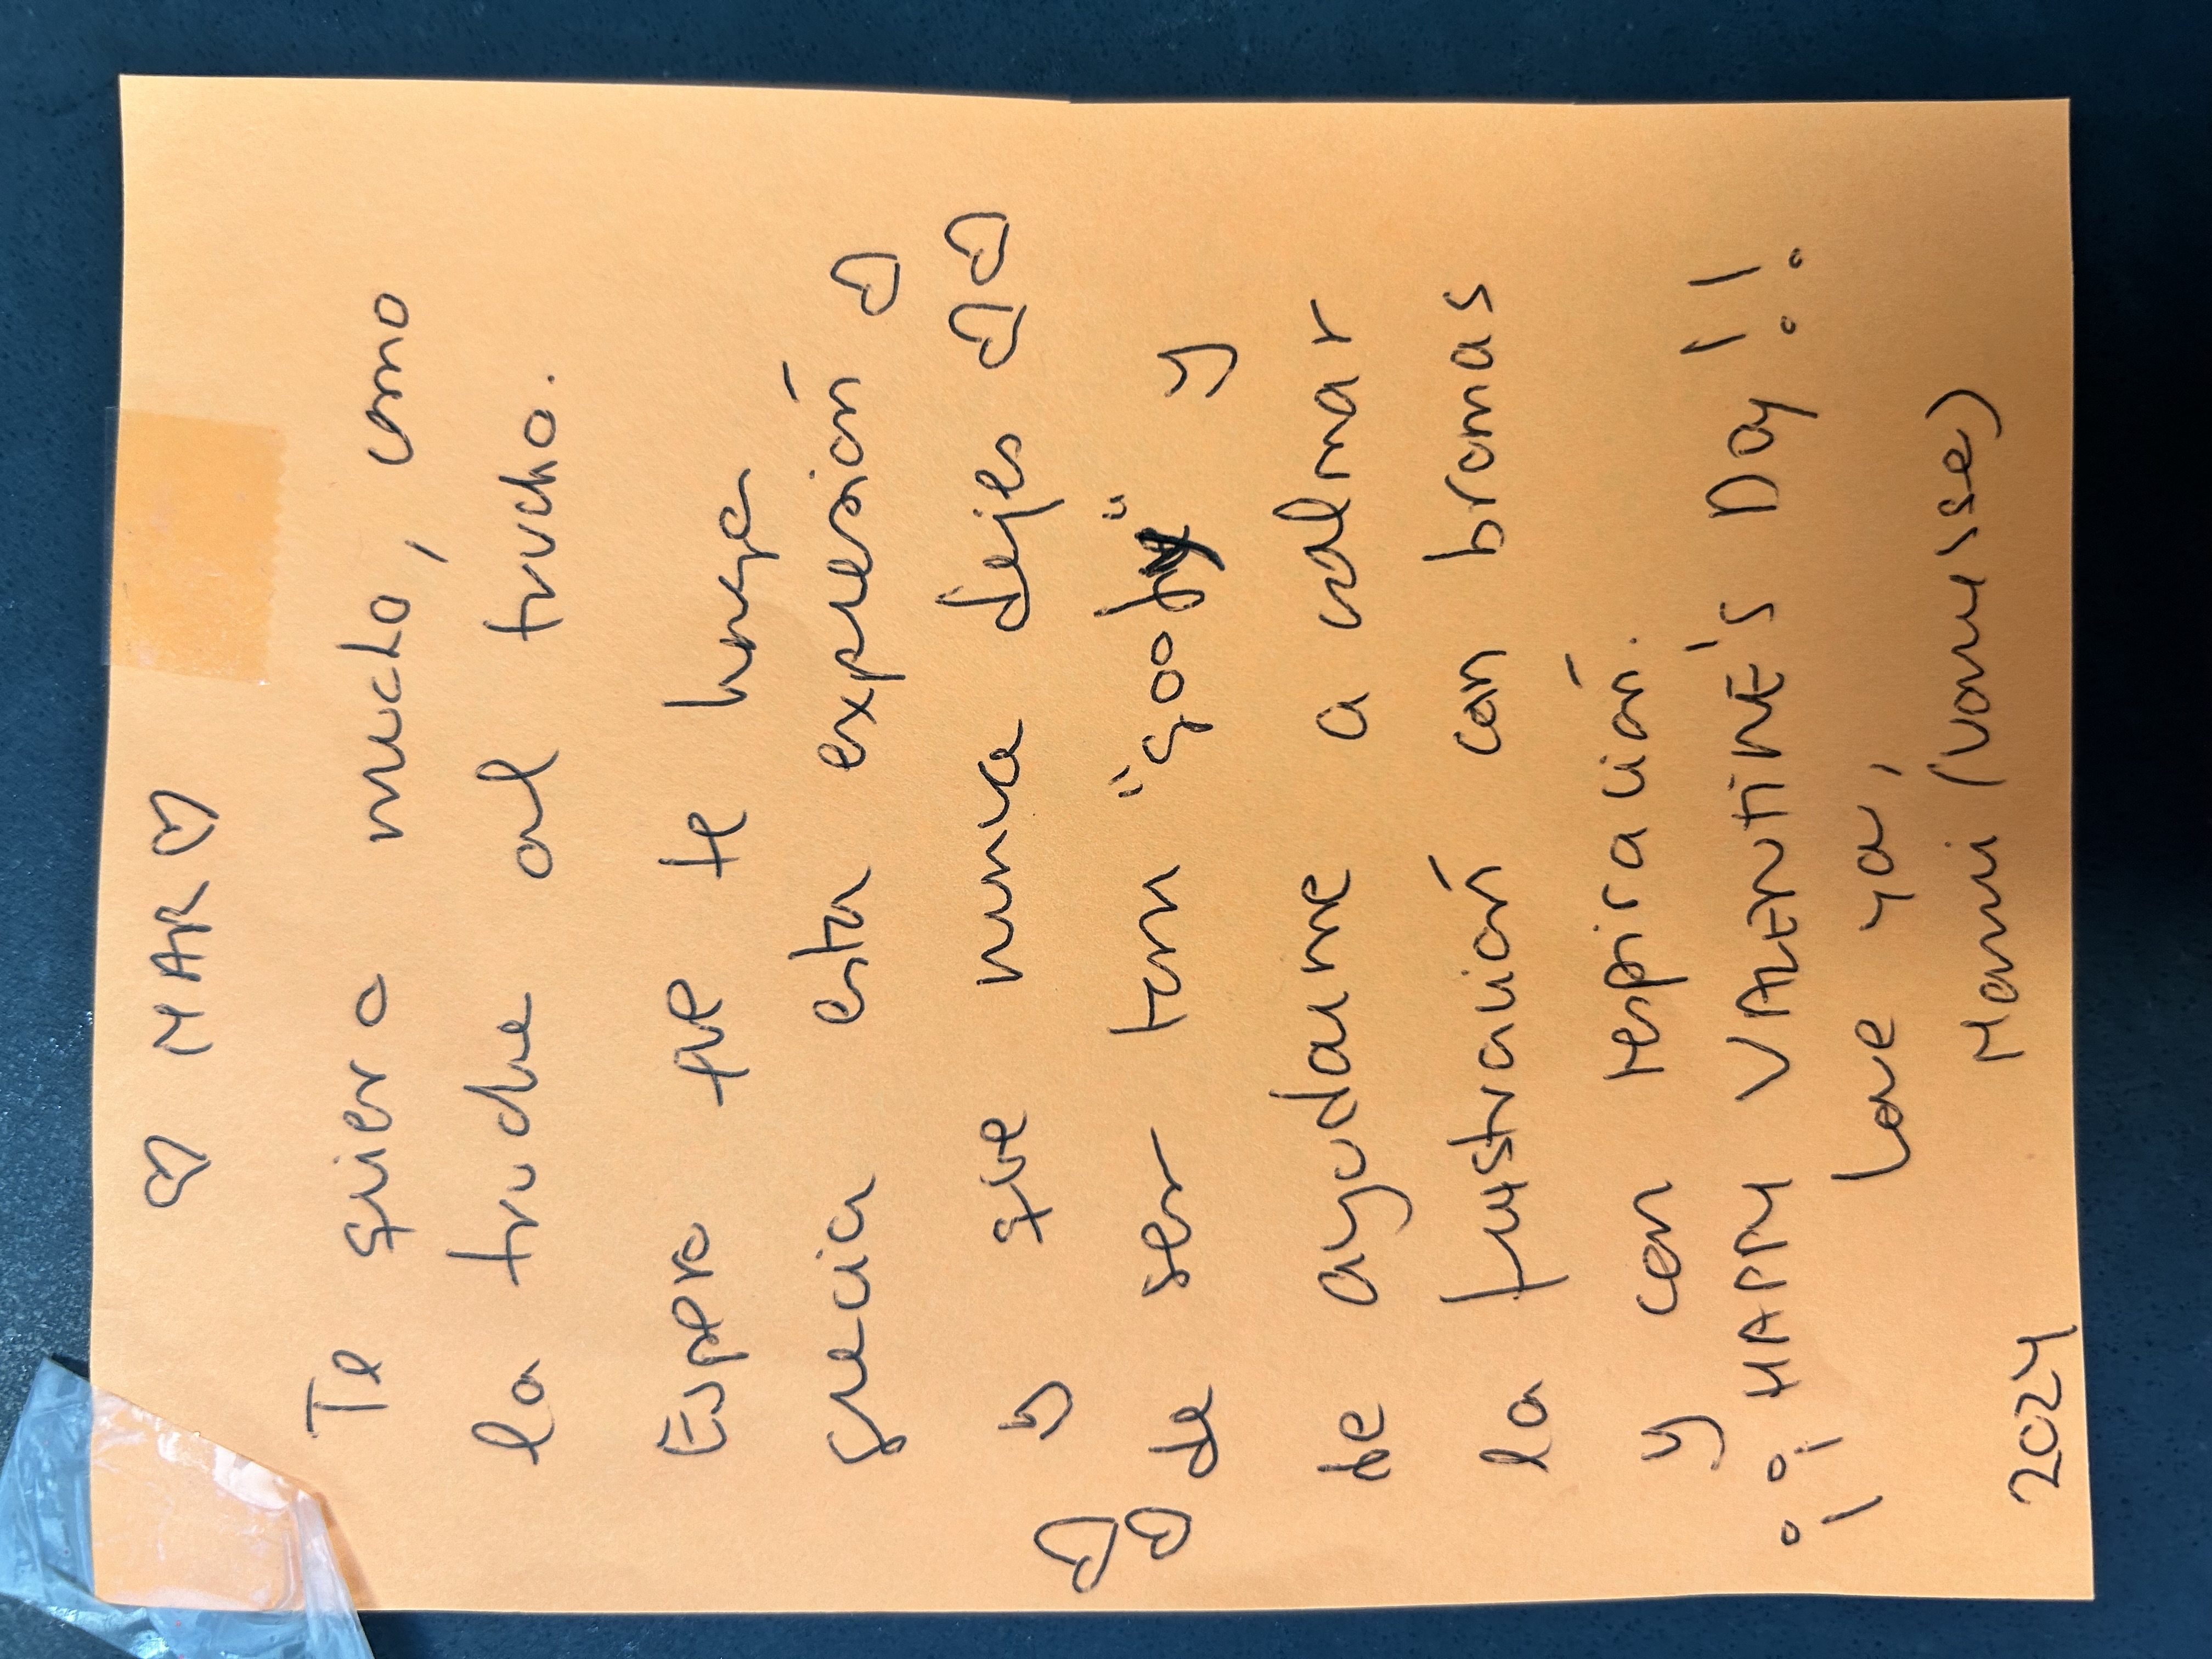 ♡ MAR ♡
Te quiero mucho, como
la trucha al trucho.
Espero que te haga
gracia esta expresión ♡
y que nunca dejes ♡♡
♡♡ de ser tan "gooby" y
de ayudarme a calmar
la fustración con bromas
y con respiración.
¡¡ HAPPY VALENTINE'S Day !!
Love ya,
Mami (Vanesse)
2024